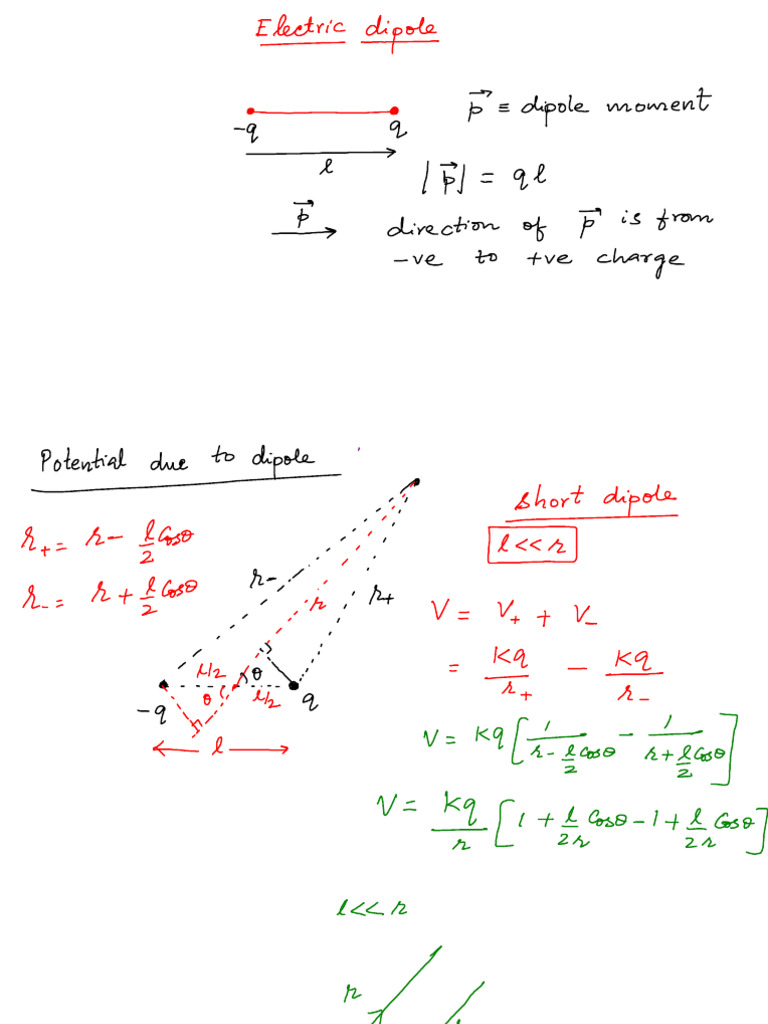 Electric dipole
-q q
l
p⃗
p⃗ ≡ dipole moment
|p⃗| = ql
direction of p⃗ is from
-ve to +ve charge
Potential due to dipole
r₊ = r - l/2 Cosθ
r₋ = r + l/2 Cosθ
r-
r
r+
l/2 θ
θ l/2
-q q
l
Short dipole
l << r
V = V₊ + V₋
= Kq/r₊ - Kq/r₋
V = Kq[1/(r - l/2 Cosθ) - 1/(r + l/2 Cosθ)]
V = Kq/r [1 + l/2r Cosθ - 1 + l/2r Cosθ]
l << r
r